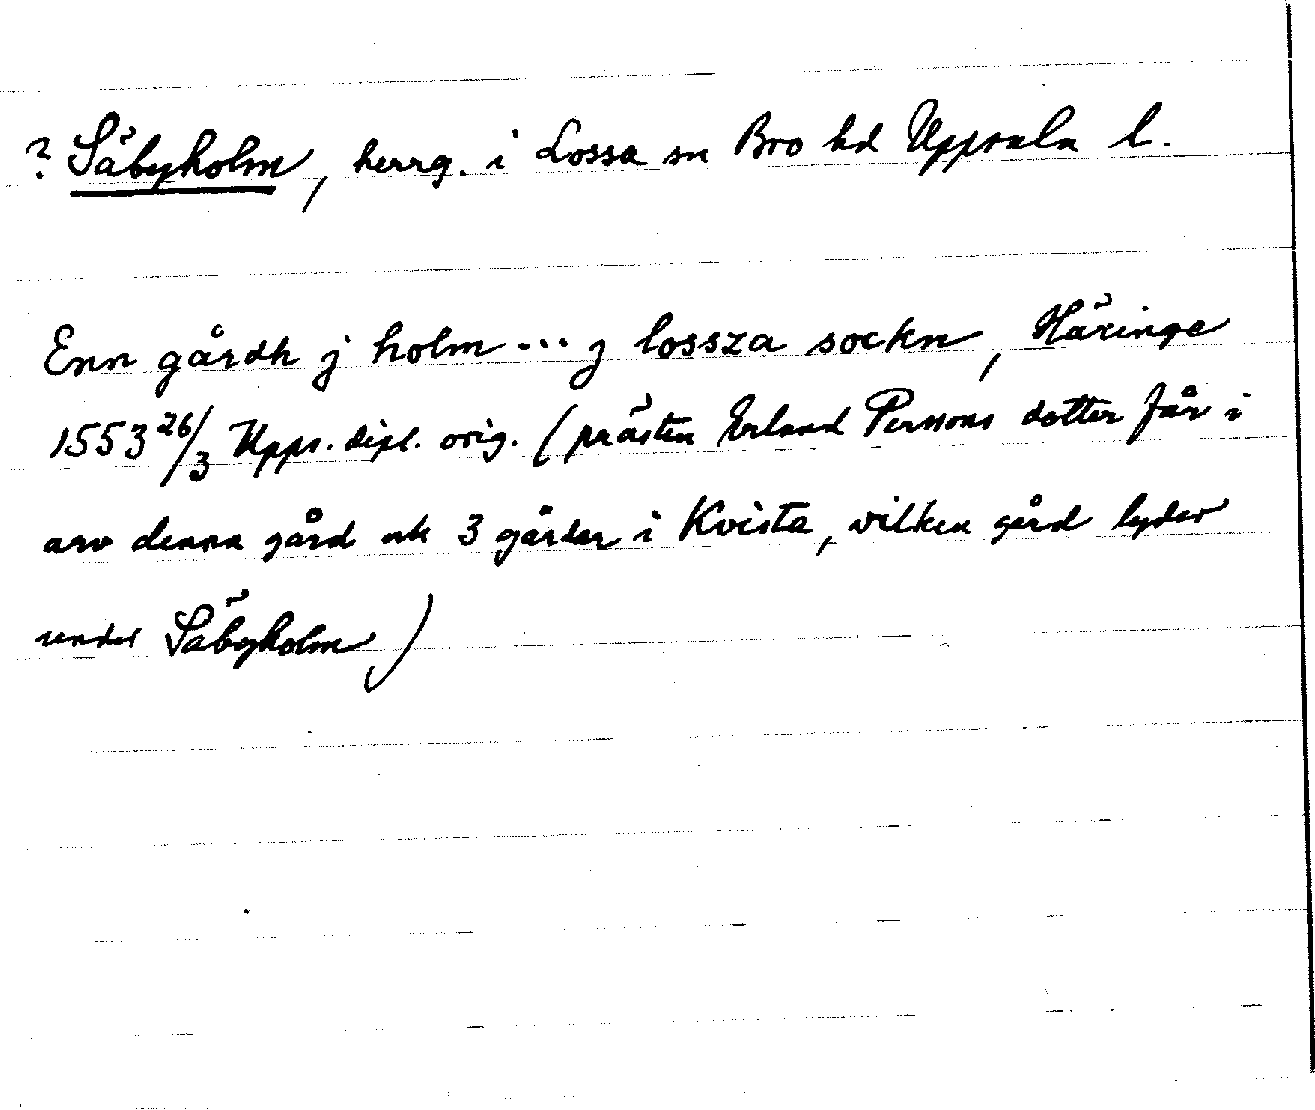 ? Säbyholm, herrg. i Lossa sn Bro hd Uppsala l.
Enn gårdh j holm ... j lossza sockn, Häringe
1553 26/3 Upps. dipl. orig. (prästen Erland Perssons dotter får i
arv denna gård och 3 gårdar i Kvista, vilken gård lyder
under Säbyholm)